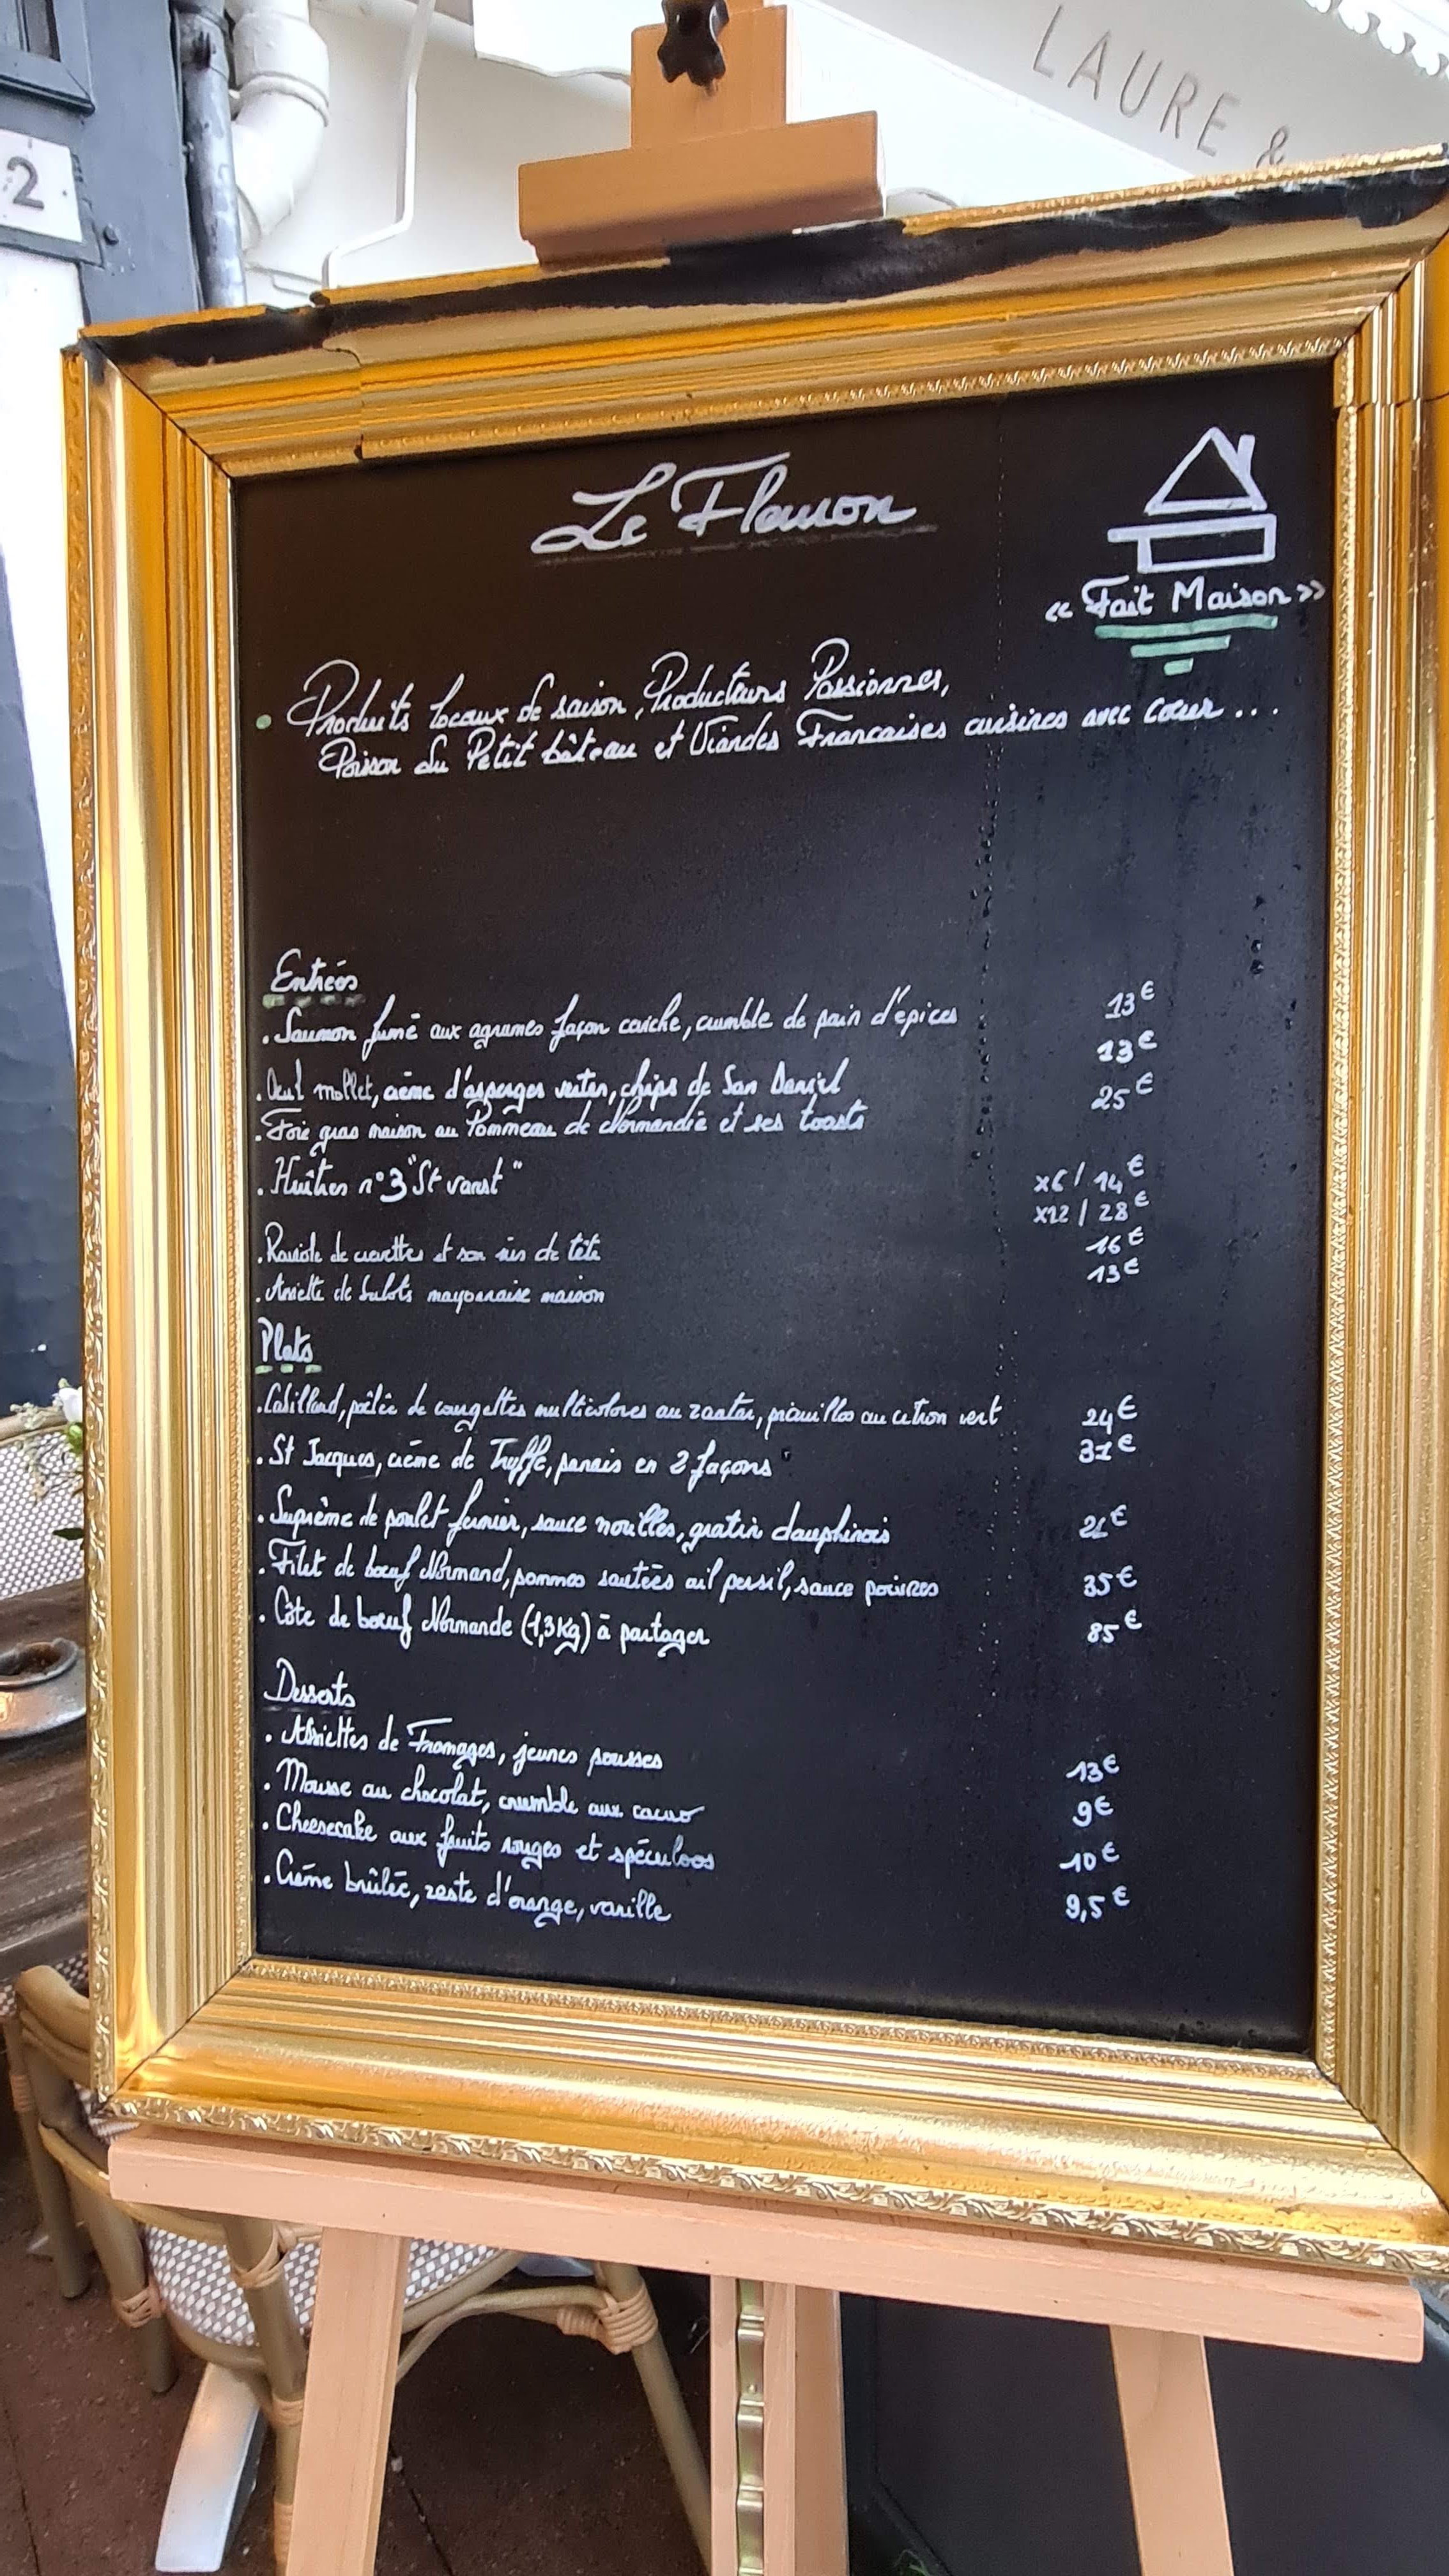 LAURE &
2
Le Flacon
« Fait Maison »
• Produits locaux de saison, Producteurs Passionnés,
Poisson du Petit bâteau et Viandes Francaises cuisinées avec coeur...
Entrées
. Saumon fumé aux agrumes façon ceviche, crumble de pain d'épices 13€
. Oeuf mollet, crème d'asperges vertes, chips de San Daniel 13€
. Foie gras maison au Pommeau de Normandie et ses toasts 25€
. Huîtres n°3 "St vaast" x6 / 14€
x12 / 28€
. Raviole de crevettes et son jus de tête 16€
. Assiette de bulots mayonnaise maison 13€
Plats
. Cabillaud, poêlée de courgettes multicolores au zaatar, au citron vert 24€
. St Jacques, crème de Truffe, panais en 2 façons 31€
. Suprême de poulet fermier, sauce morilles, gratin dauphinois €
. Filet de boeuf Normand, pommes sautées ail persil, sauce poivres 35€
. Côte de boeuf Normande (1,3kg) à partager 85€
Desserts
. Assiettes de Fromages, jeunes pousses 13€
. Mousse au chocolat, crumble aux cacao 9€
. Cheesecake aux fruits rouges et spéculoos 10€
. Crème brûlée, zeste d'orange, vanille 9,5€